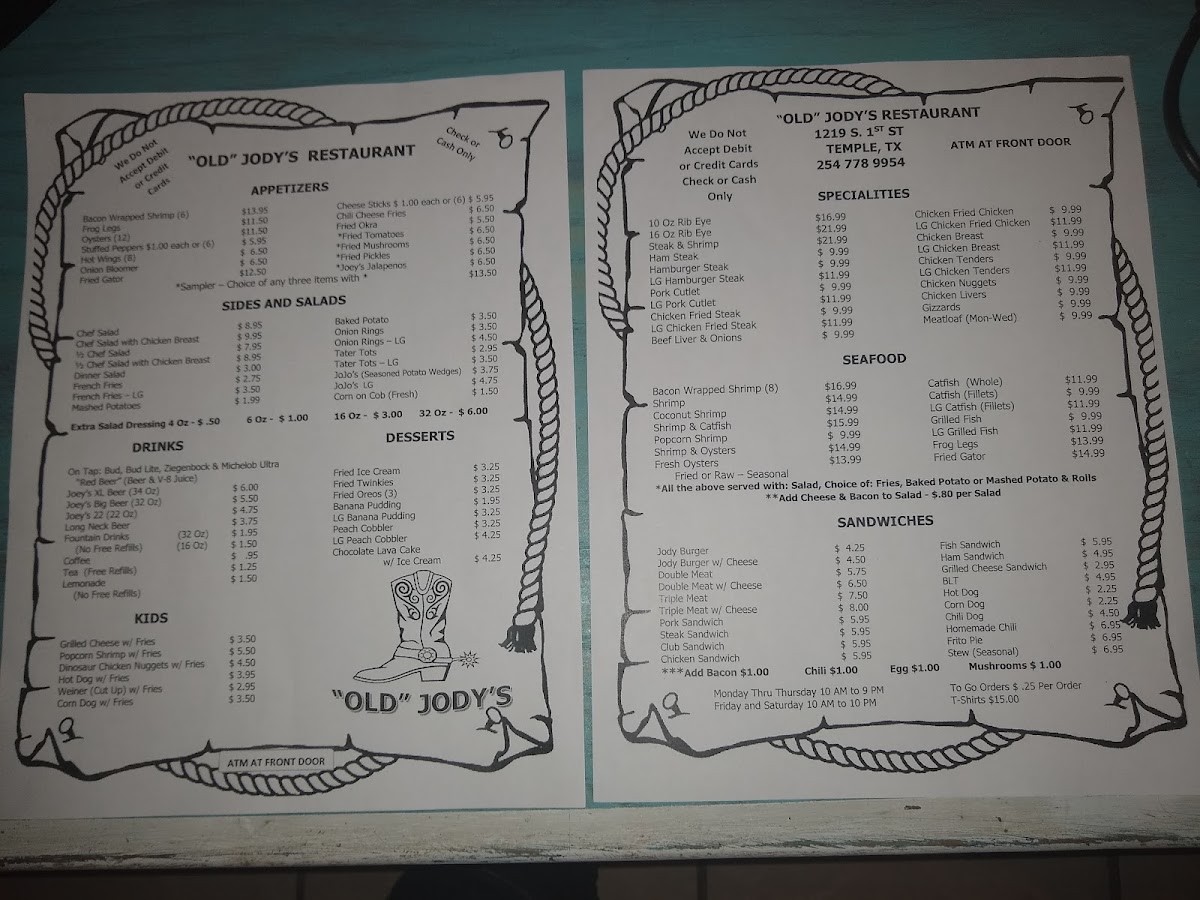 We Do Not
Accept Debit
or Credit
Cards
Check or
Cash Only
"OLD" JODY'S RESTAURANT
APPETIZERS
Bacon Wrapped Shrimp (6) $13.95
Frog Legs $11.50
Oysters (12) $11.50
Stuffed Peppers $1.00 each or (6) $ 5.95
Hot Wings (8) $ 6.50
Onion Bloomer $ 6.50
Fried Gator $12.50
Cheese Sticks $ 1.00 each or (6) $ 5.95
Chili Cheese Fries $ 6.50
Fried Okra $ 5.50
*Fried Tomatoes $ 6.50
*Fried Mushrooms $ 6.50
*Fried Pickles $ 6.50
*Joey's Jalapenos $ 6.50
*Sampler – Choice of any three items with * $13.50
SIDES AND SALADS
Chef Salad $ 8.95
Chef Salad with Chicken Breast $ 9.95
½ Chef Salad $ 7.95
½ Chef Salad with Chicken Breast $ 8.95
Dinner Salad $ 3.00
French Fries $ 2.75
French Fries – LG $ 3.50
Mashed Potatoes $ 1.99
Baked Potato $ 3.50
Onion Rings $ 3.50
Onion Rings – LG $ 4.50
Tater Tots $ 2.95
Tater Tots – LG $ 3.50
JoJo's (Seasoned Potato Wedges) $ 3.75
JoJo's LG $ 4.75
Corn on Cob (Fresh) $ 1.50
Extra Salad Dressing 4 Oz - $ .50 6 Oz - $ 1.00 16 Oz - $ 3.00 32 Oz - $ 6.00
DRINKS
On Tap: Bud, Bud Lite, Ziegenbock & Michelob Ultra
"Red Beer" (Beer & V-8 Juice)
Joey's XL Beer (34 Oz) $ 6.00
Joey's Big Beer (32 Oz) $ 5.50
Joey's 22 (22 Oz) $ 4.75
Long Neck Beer $ 3.75
Fountain Drinks (32 Oz) $ 1.95
(No Free Refills) (16 Oz) $ 1.50
Coffee $ .95
Tea (Free Refills) $ 1.25
Lemonade $ 1.50
(No Free Refills)
DESSERTS
Fried Ice Cream $ 3.25
Fried Twinkies $ 3.25
Fried Oreos (3) $ 3.25
Banana Pudding $ 1.95
LG Banana Pudding $ 3.25
Peach Cobbler $ 3.25
LG Peach Cobbler $ 4.25
Chocolate Lava Cake
w/ Ice Cream $ 4.25
KIDS
Grilled Cheese w/ Fries $ 3.50
Popcorn Shrimp w/ Fries $ 5.50
Dinosaur Chicken Nuggets w/ Fries $ 4.50
Hot Dog w/ Fries $ 3.95
Weiner (Cut Up) w/ Fries $ 2.95
Corn Dog w/ Fries $ 3.50
"OLD" JODY'S
ATM AT FRONT DOOR
We Do Not
Accept Debit
or Credit Cards
Check or Cash
Only
"OLD" JODY'S RESTAURANT
1219 S. 1ST ST
TEMPLE, TX
254 778 9954
ATM AT FRONT DOOR
SPECIALITIES
10 Oz Rib Eye $16.99
16 Oz Rib Eye $21.99
Steak & Shrimp $21.99
Ham Steak $ 9.99
Hamburger Steak $ 9.99
LG Hamburger Steak $11.99
Pork Cutlet $ 9.99
LG Pork Cutlet $11.99
Chicken Fried Steak $ 9.99
LG Chicken Fried Steak $11.99
Beef Liver & Onions $ 9.99
Chicken Fried Chicken $ 9.99
LG Chicken Fried Chicken $11.99
Chicken Breast $ 9.99
LG Chicken Breast $11.99
Chicken Tenders $ 9.99
LG Chicken Tenders $11.99
Chicken Nuggets $ 9.99
Chicken Livers $ 9.99
Gizzards $ 9.99
Meatloaf (Mon-Wed) $ 9.99
SEAFOOD
Bacon Wrapped Shrimp (8) $16.99
Shrimp $14.99
Coconut Shrimp $14.99
Shrimp & Catfish $15.99
Popcorn Shrimp $ 9.99
Shrimp & Oysters $14.99
Fresh Oysters $13.99
Fried or Raw – Seasonal
Catfish (Whole) $11.99
Catfish (Fillets) $ 9.99
LG Catfish (Fillets) $11.99
Grilled Fish $ 9.99
LG Grilled Fish $11.99
Frog Legs $13.99
Fried Gator $14.99
*All the above served with: Salad, Choice of: Fries, Baked Potato or Mashed Potato & Rolls
**Add Cheese & Bacon to Salad - $.80 per Salad
SANDWICHES
Jody Burger $ 4.25
Jody Burger w/ Cheese $ 4.50
Double Meat $ 5.75
Double Meat w/ Cheese $ 6.50
Triple Meat $ 7.50
Triple Meat w/ Cheese $ 8.00
Pork Sandwich $ 5.95
Steak Sandwich $ 5.95
Club Sandwich $ 5.95
Chicken Sandwich $ 5.95
Fish Sandwich $ 5.95
Ham Sandwich $ 4.95
Grilled Cheese Sandwich $ 2.95
BLT $ 4.95
Hot Dog $ 2.25
Corn Dog $ 2.25
Chili Dog $ 4.50
Homemade Chili $ 6.95
Frito Pie $ 6.95
Stew (Seasonal) $ 6.95
***Add Bacon $1.00 Chili $1.00 Egg $1.00 Mushrooms $ 1.00
Monday Thru Thursday 10 AM to 9 PM
Friday and Saturday 10 AM to 10 PM
To Go Orders $ .25 Per Order
T-Shirts $15.00